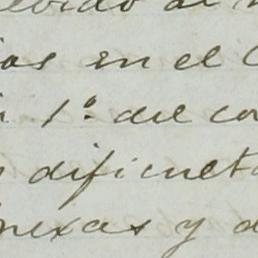 ebido al
ias en el C
1º del cor
dificulta
nexas y d